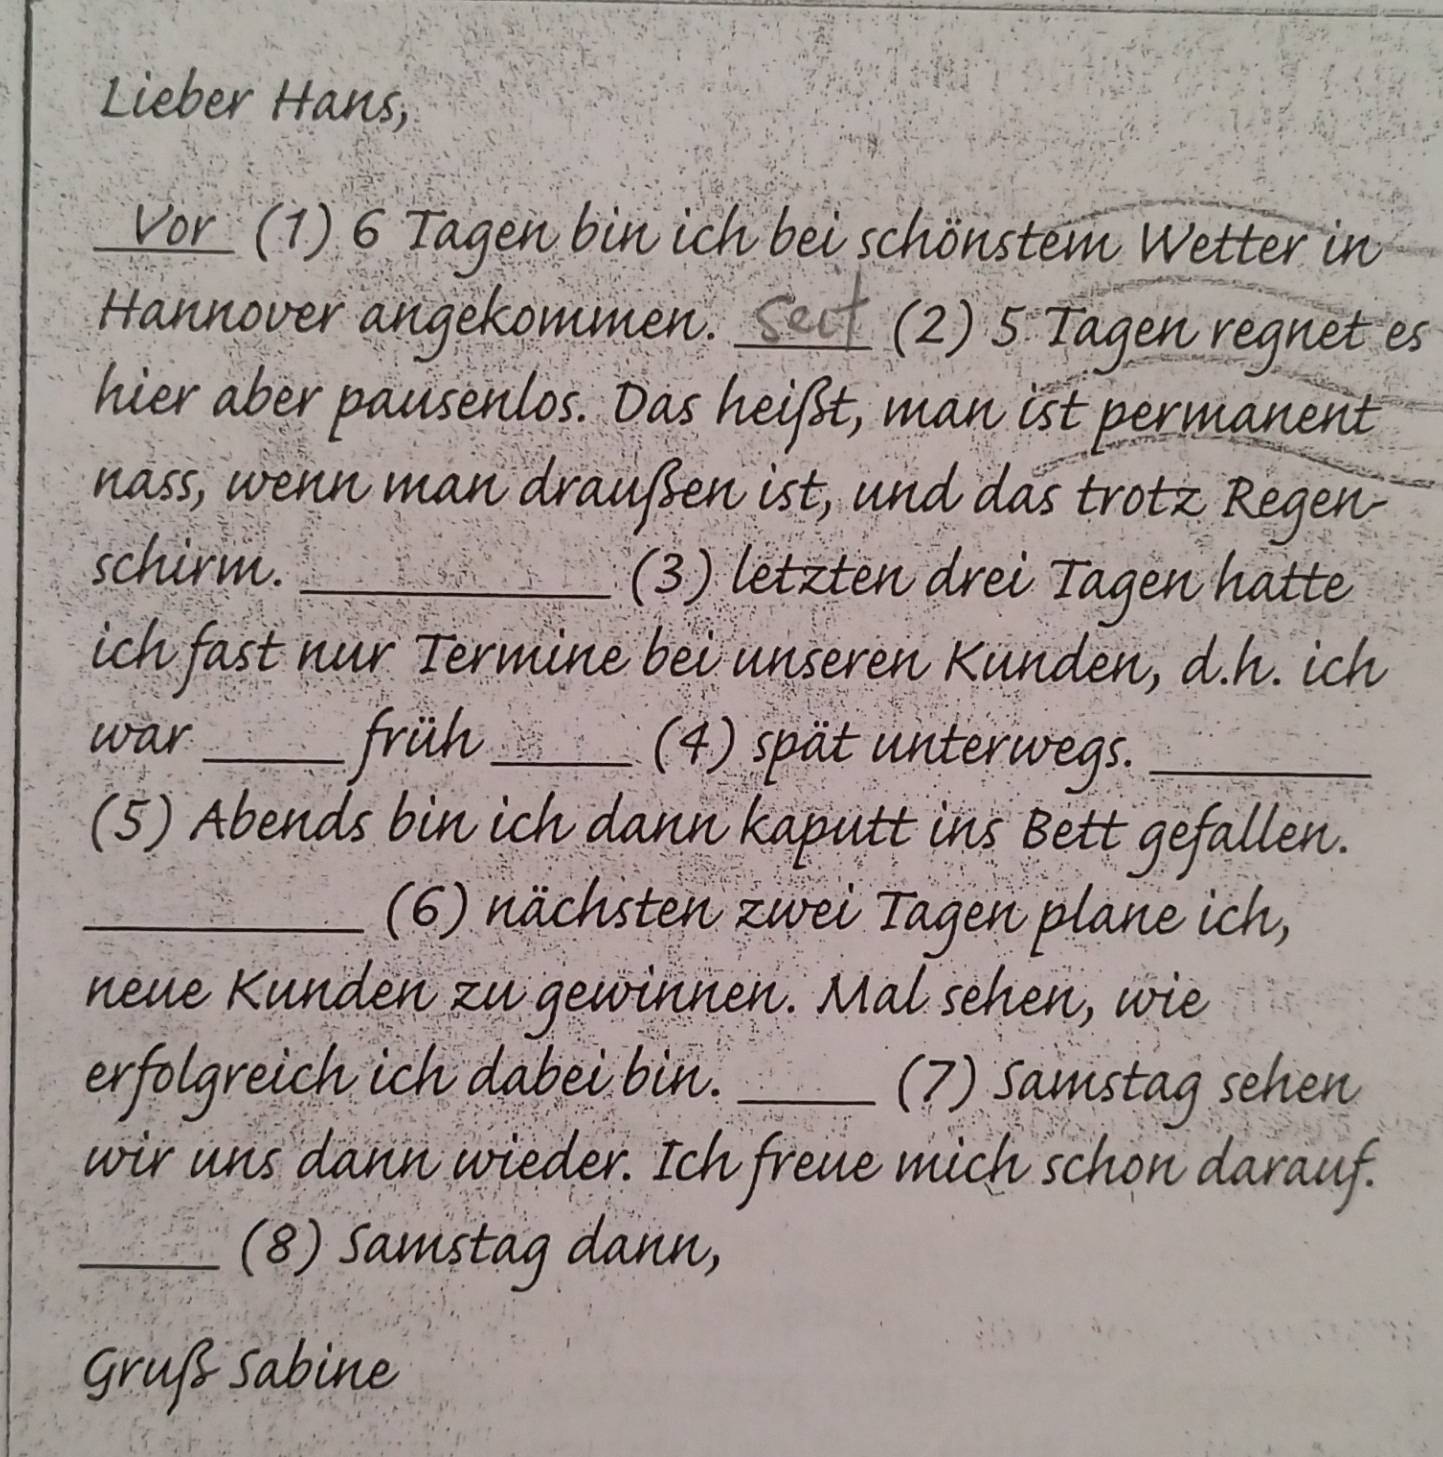 Lieber Hans,
Vor (1) 6 Tagen bin ich bei schönstem Wetter in
Hannover angekommen. seit (2) 5 Tagen regnet es
hier aber pausenlos. Das heißt, man ist permanent
nass, wenn man draußen ist, und das trotz Regen-
schirm. __________ (3) letzten drei Tagen hatte
ich fast nur Termine bei unseren Kunden, d.h. ich
war _____ früh _____ (4) spät unterwegs. _______
(5) Abends bin ich dann kaputt ins Bett gefallen.
_________ (6) nächsten zwei Tagen plane ich,
neue Kunden zu gewinnen. Mal sehen, wie
erfolgreich ich dabei bin. _____ (7) Samstag sehen
wir uns dann wieder. Ich freue mich schon darauf.
_____ (8) Samstag dann,
Gruß Sabine